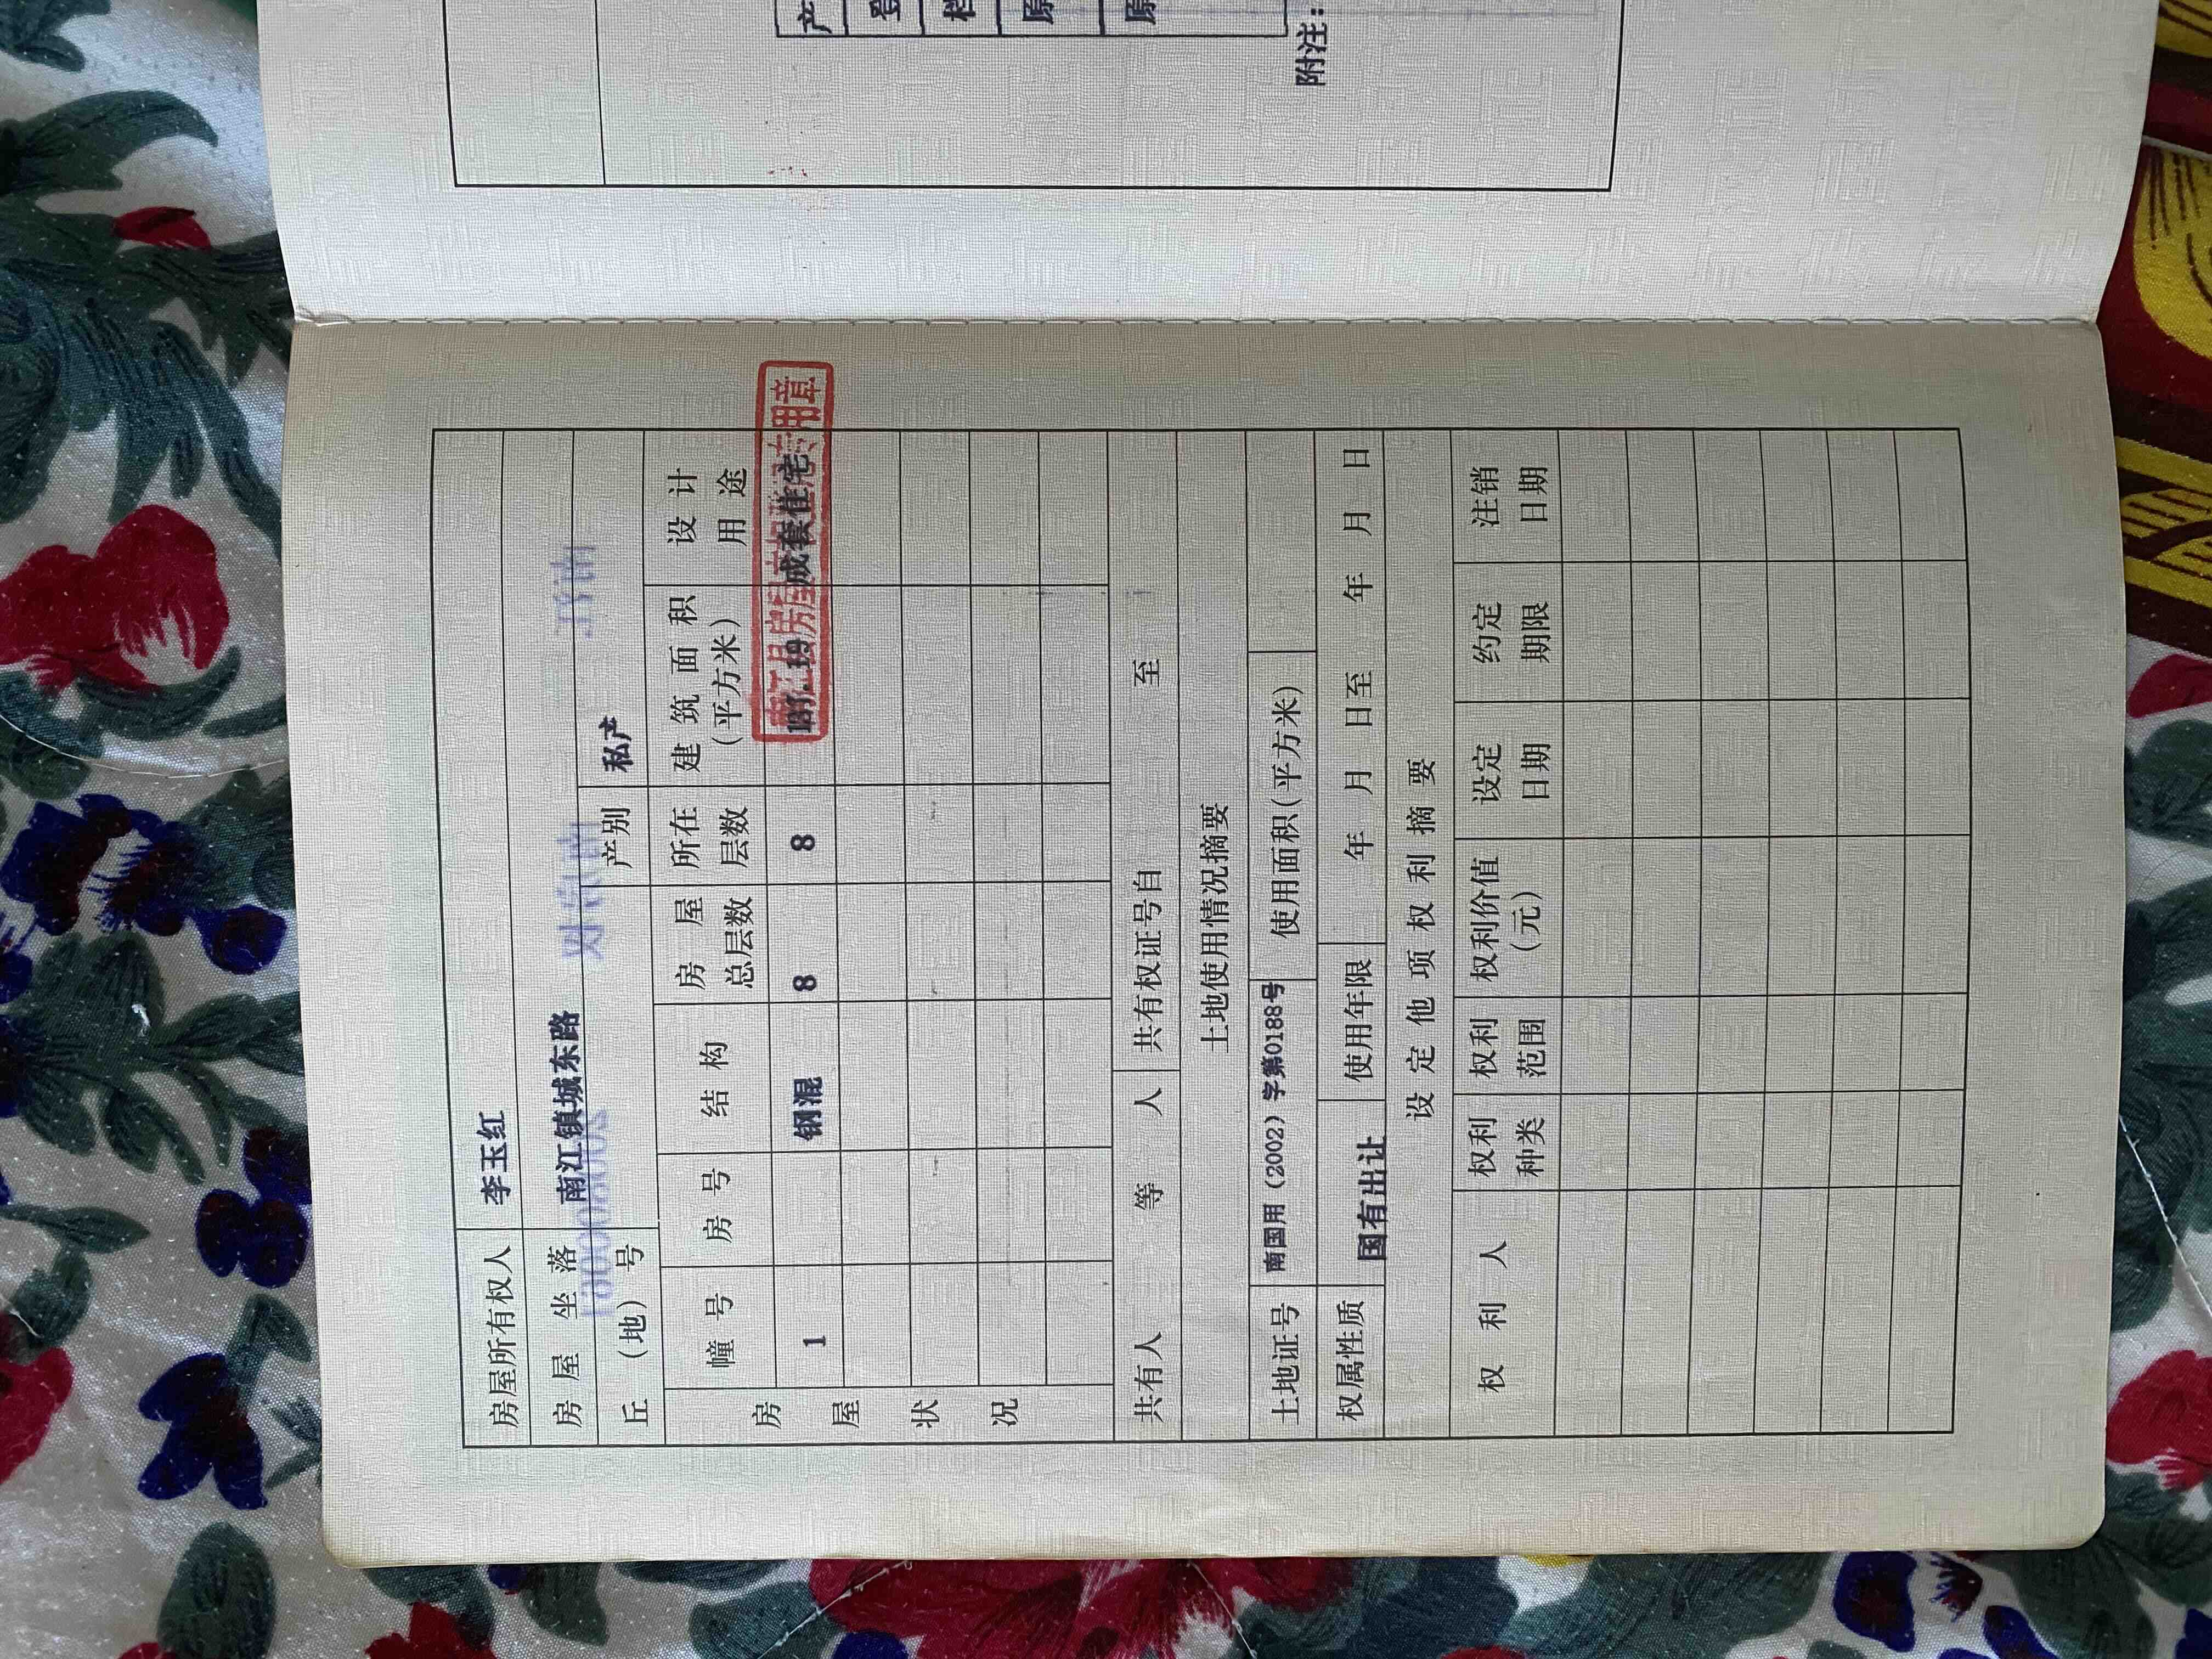 房屋所有权人 李玉红
房屋坐落 南江镇城东路
丘（地）号 产别 私产
房屋状况
幢号 房号 结构 房屋总层数 所在层数 建筑面积（平方米） 设计用途
1 钢混 8 8 成套住宅
共有人 等 人 共有权证号自 至
土地使用情况摘要
土地证号 南国用（2002）字第0188号 使用面积（平方米）
权属性质 国有出让 使用年限 年 月 日至 年 月 日
设定他项权利摘要
权利人 权利种类 权利范围 权利价值（元） 设定日期 约定期限 注销日期
产
登
档
原
原
附注：